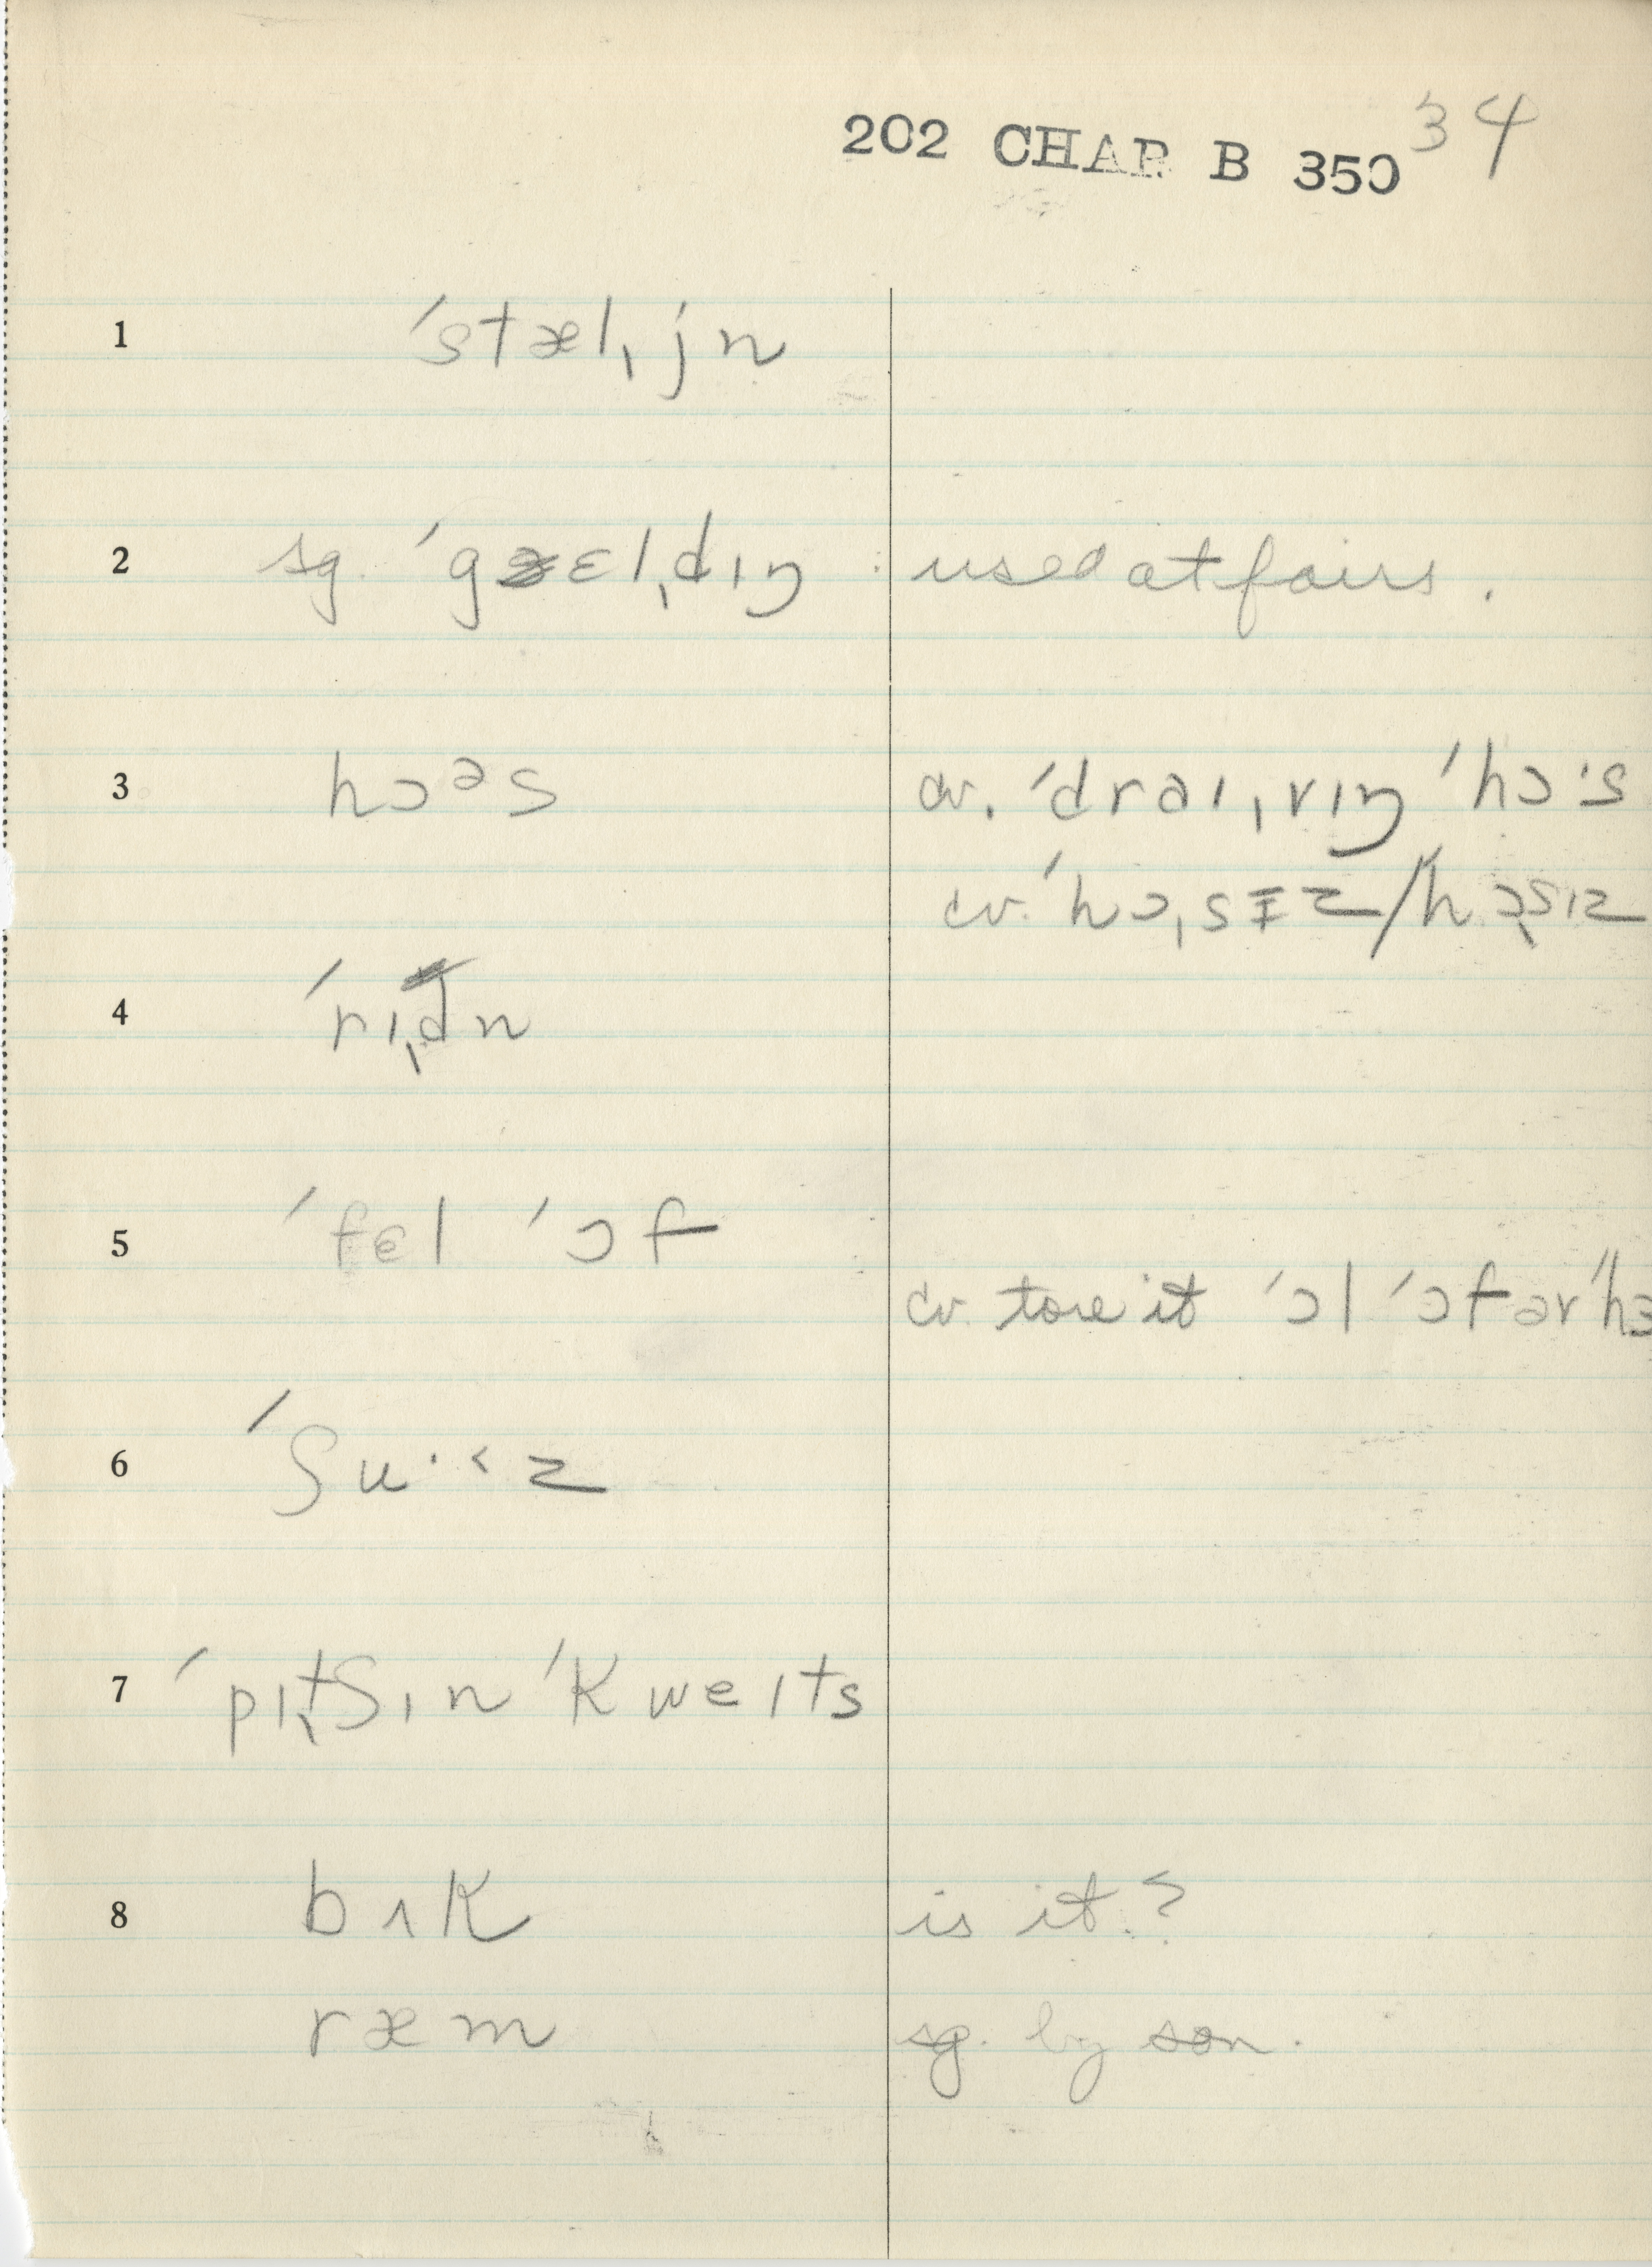 202 CHAR B 350 34
1 ˈstæl ˌjn
2 sg. ˈgɛlˌdɪŋ : used at fairs.
3 hɔᵊs cv. ˈdraɪˌvɪŋ ˈhɔˑs
cv. ˈhɔˌsɪz/ˈhɔˌsɪz
4 ˈrɪˌdn
5 ˈfɛl ˈɔf
cv. tore it ˈɔl ˈɔf ər ˈhɔ
6 ˈʃuˑ˂z
7 ˈpɪˌtʃɪn ˈkweɪts
8 bʌk is it?
ræm sg. by son.